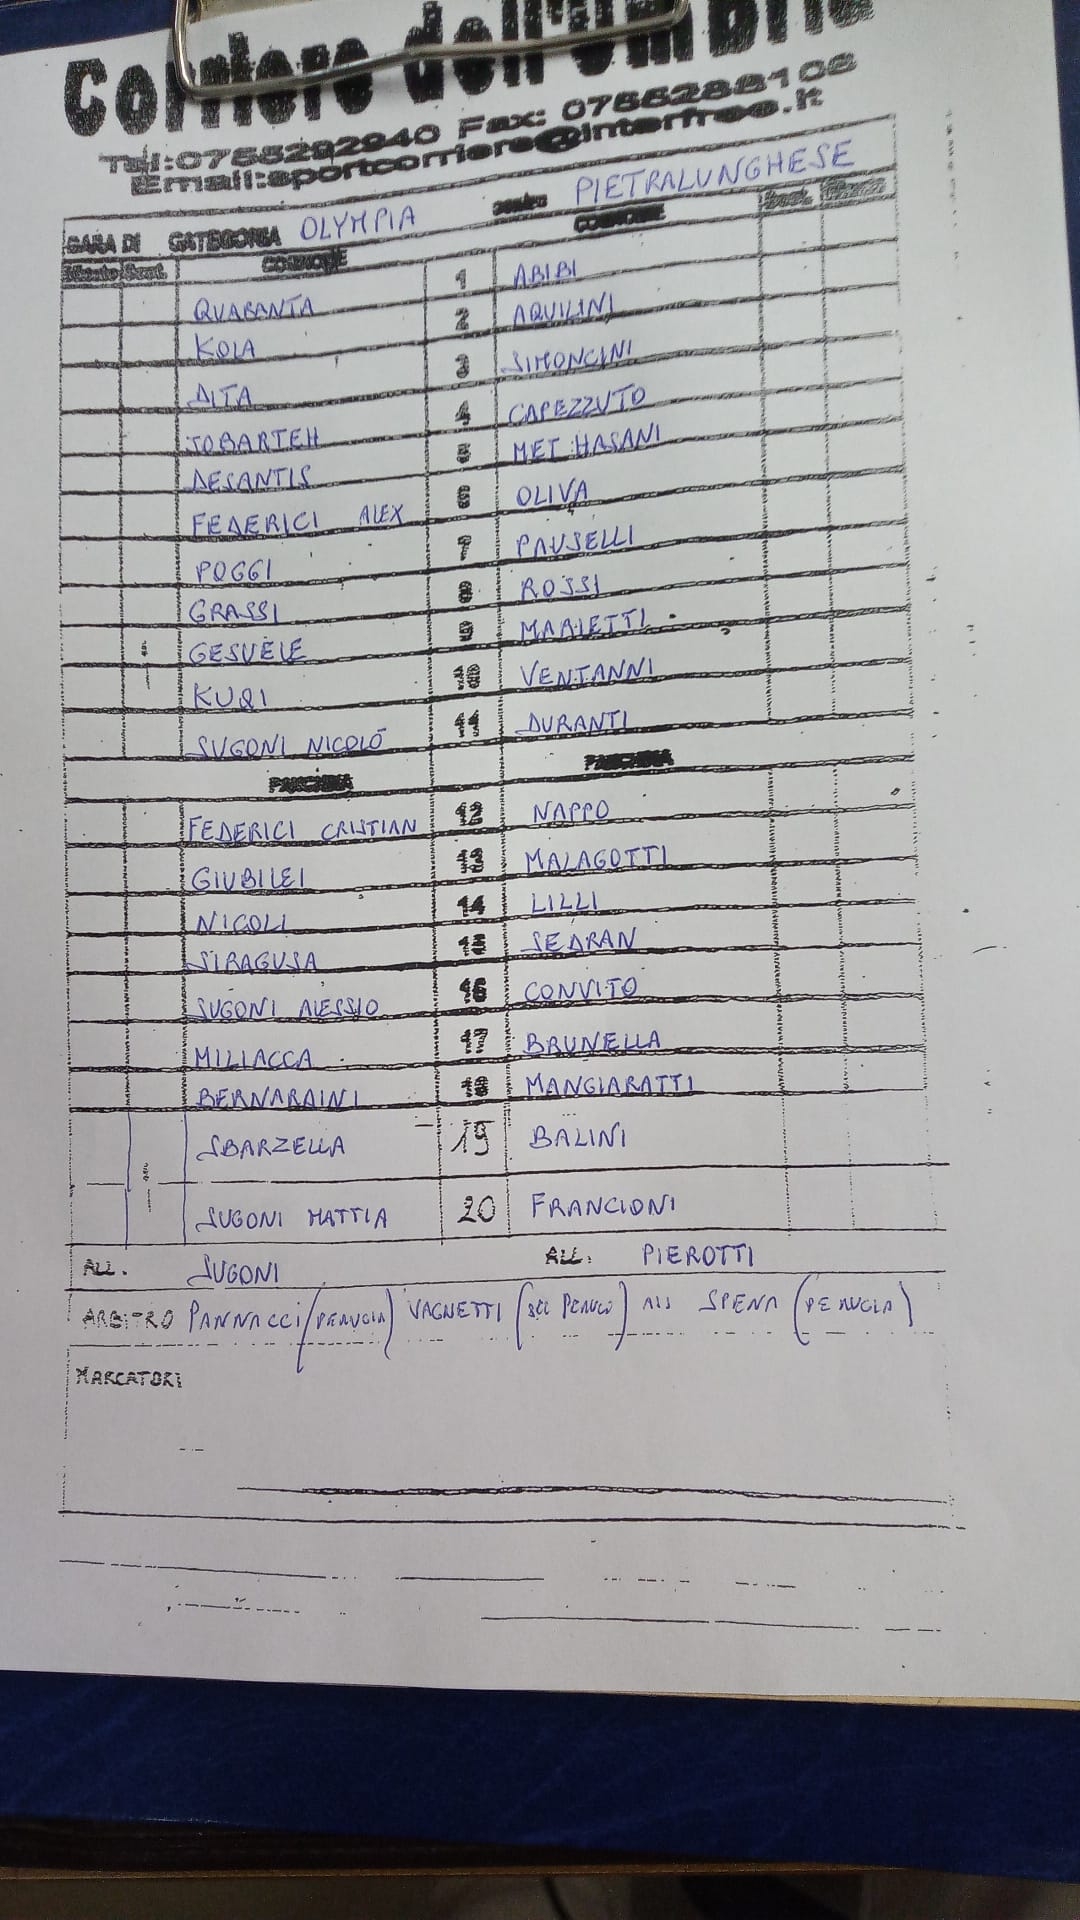 Corriere dell'Umbria
Tel:0755292940 Fax: 0755288106
Email:sportcorriere@interfree.it
GARA DI CATEGORIA OLYMPIA contro PIETRALUNGHESE
Minuto Sost. COGNOME COGNOME Sost. Minuto
QUARANTA 1 ABIBI
KOLA 2 AQUILINI
DITA 3 SIMONCINI
JOBARTEH 4 CAPEZZUTO
DESANTIS 5 MET HASANI
FEDERICI ALEX 6 OLIVA
POGGI 7 PAUSELLI
GRASSI 8 ROSSI
GESUELE 9 MARIETTI
KUQI 10 VENTANNI
SUGONI NICOLÓ 11 DURANTI
PANCHINA PANCHINA
FEDERICI CRISTIAN 12 NAPPO
GIUBILEI 13 MALAGOTTI
NICOLI 14 LILLI
SIRAGUSA 15 SEDRAN
SUGONI ALESSIO 16 CONVITO
MILIACCA 17 BRUNELLA
BERNARDINI 18 MANGIARATTI
SBARZELLA 19 BALINI
SUGONI MATTIA 20 FRANCIONI
ALL. SUGONI ALL. PIEROTTI
ARBITRO PANNACCI (PERUGIA) VAGNETTI SPENA (PERUGIA)
MARCATORI